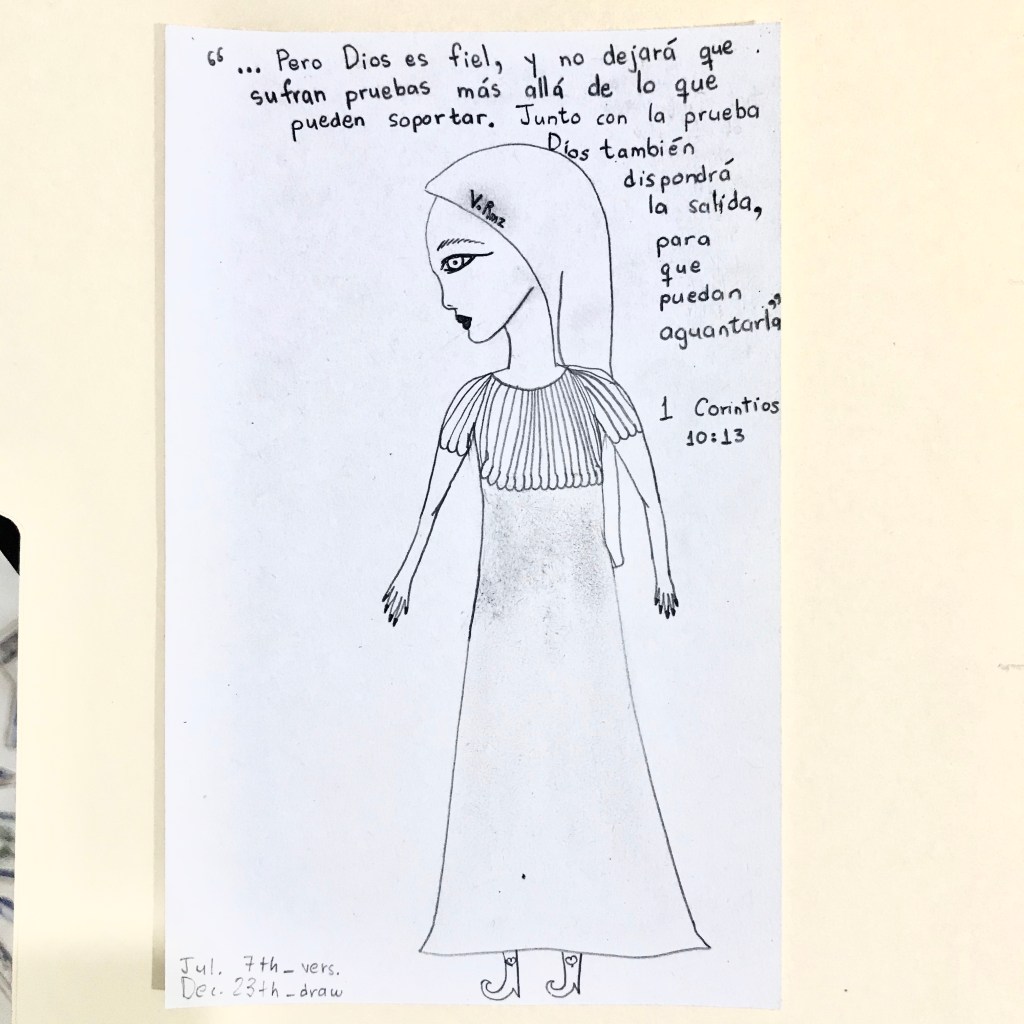 “ ... Pero Dios es fiel, y no dejará que
sufran pruebas más allá de lo que
pueden soportar. Junto con la prueba
Dios también
dispondrá
la salida,
para
que
puedan
aguantarla”
1 Corintios
10:13
V. Rmz
Jul. 7th_vers.
Dec. 23th_draw